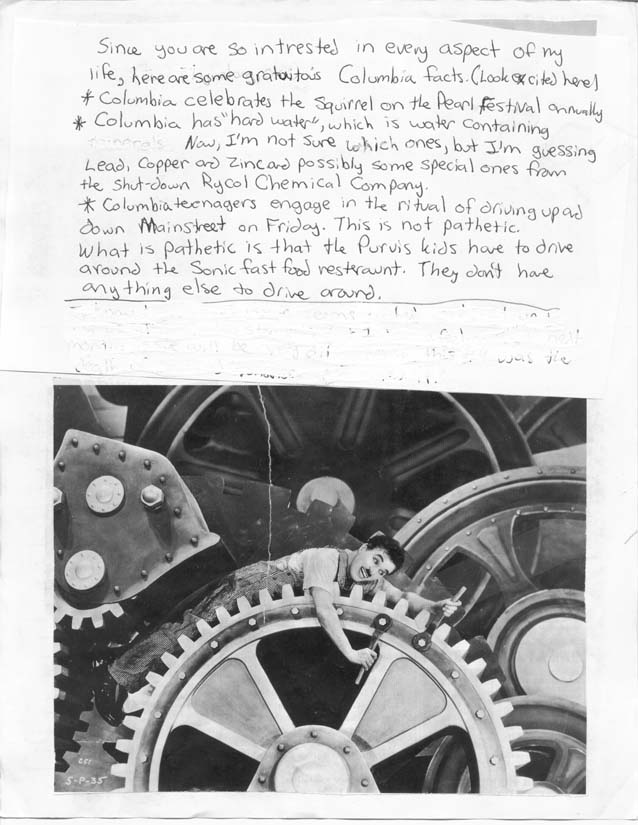 Since you are so intrested in every aspect of my
life, here are some gratuitous Columbia facts. (Look excited here)
* Columbia celebrates the Squirrel on the Pearl Festival annually
* Columbia has "hard water", which is water containing
minerals. Now, I'm not sure which ones, but I'm guessing
Lead, Copper and Zinc and possibly some special ones from
the shut-down Rycol Chemical Company.
* Columbia teenagers engage in the ritual of driving up and
down Mainstreet on Friday. This is not pathetic.
What is pathetic is that the Purvis kids have to drive
around the Sonic fast food resteraunt. They don't have
anything else to drive around.
months will be
was the
CS1
5-P-35